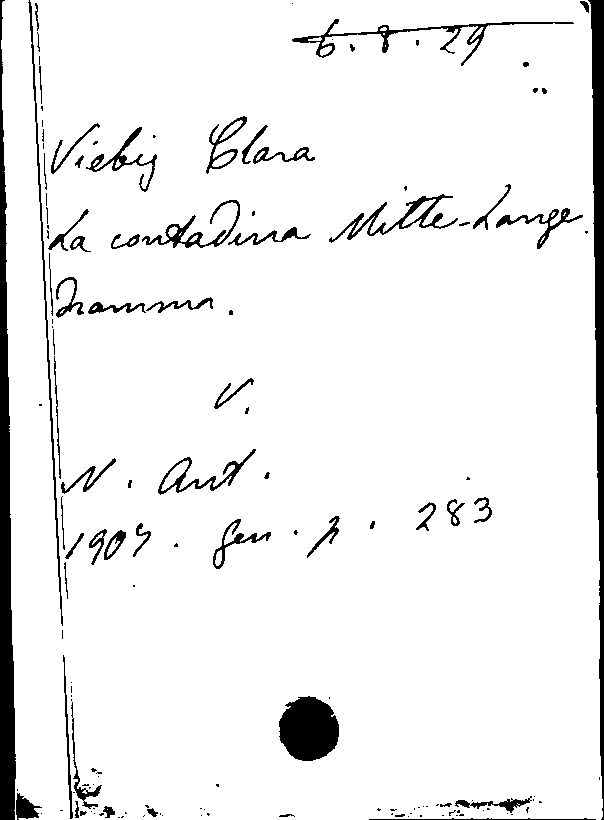 6.8.29
Viebig Clara
La contadina Mitte-Lange
Dramma.
V.
N. Ant.
1907. Gen. p. 283